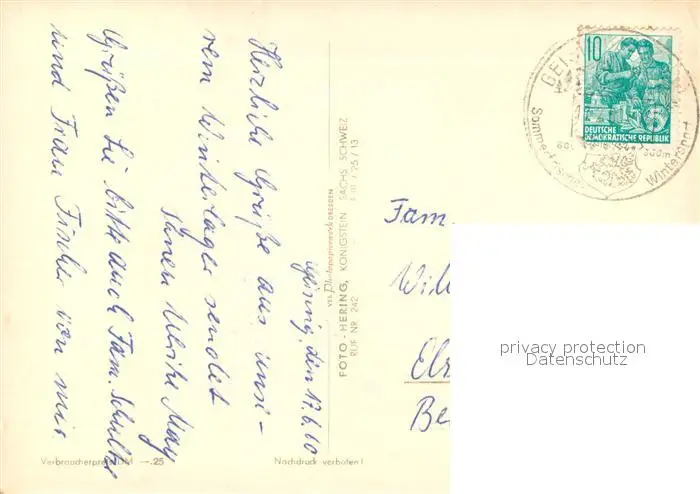 den 17.6.60
Herzliche Grüße aus unse-
rem Winterlager sendet
Ihnen Ulrike May
Grüßen Sie bitte auch Fam. Schulze
und Frau Fischer von mir.
VEB Photopapierwerk DRESDEN
FOTO-HERING, KÖNIGSTEIN SÄCHS SCHWEIZ
RUF NR 242
25/13
Verbraucherpreis DM —.25
Nachdruck verboten!
10
DEUTSCHE
DEMOKRATISCHE REPUBLIK
GEI
Sommerfrische
Wintersport
Fam.
privacy protection
Datenschutz